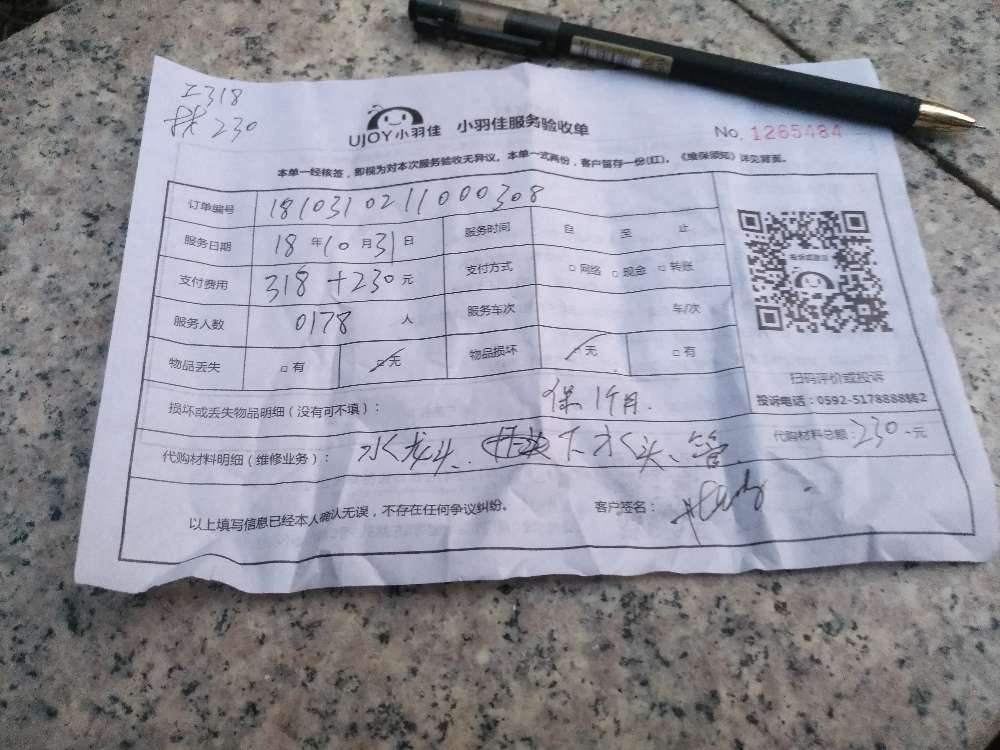 工318
材230
UJOY小羽佳 小羽佳服务验收单 No. 1265484
本单一经核签，即视为对本次服务验收无异议。本单一式两份，客户留存一份(红)。《维保须知》详见背面。
订单编号 1810310211000308
服务日期 18 年 10 月 31 日 服务时间 自 至 止
支付费用 318+230 元 支付方式 □ 网络 □ 现金 □ 转账
服务人数 0178 人 服务车次 车/次
物品丢失 □ 有 □ 无 物品损坏 □ 无 □ 有
扫码评价或投诉
投诉电话：0592-5178888转2
损坏或丢失物品明细（没有可不填）： 保1个月.
代购材料明细（维修业务）： 水龙头、下水头、管 代购材料总额：230元
以上填写信息已经本人确认无误，不存在任何争议纠纷。 客户签名：